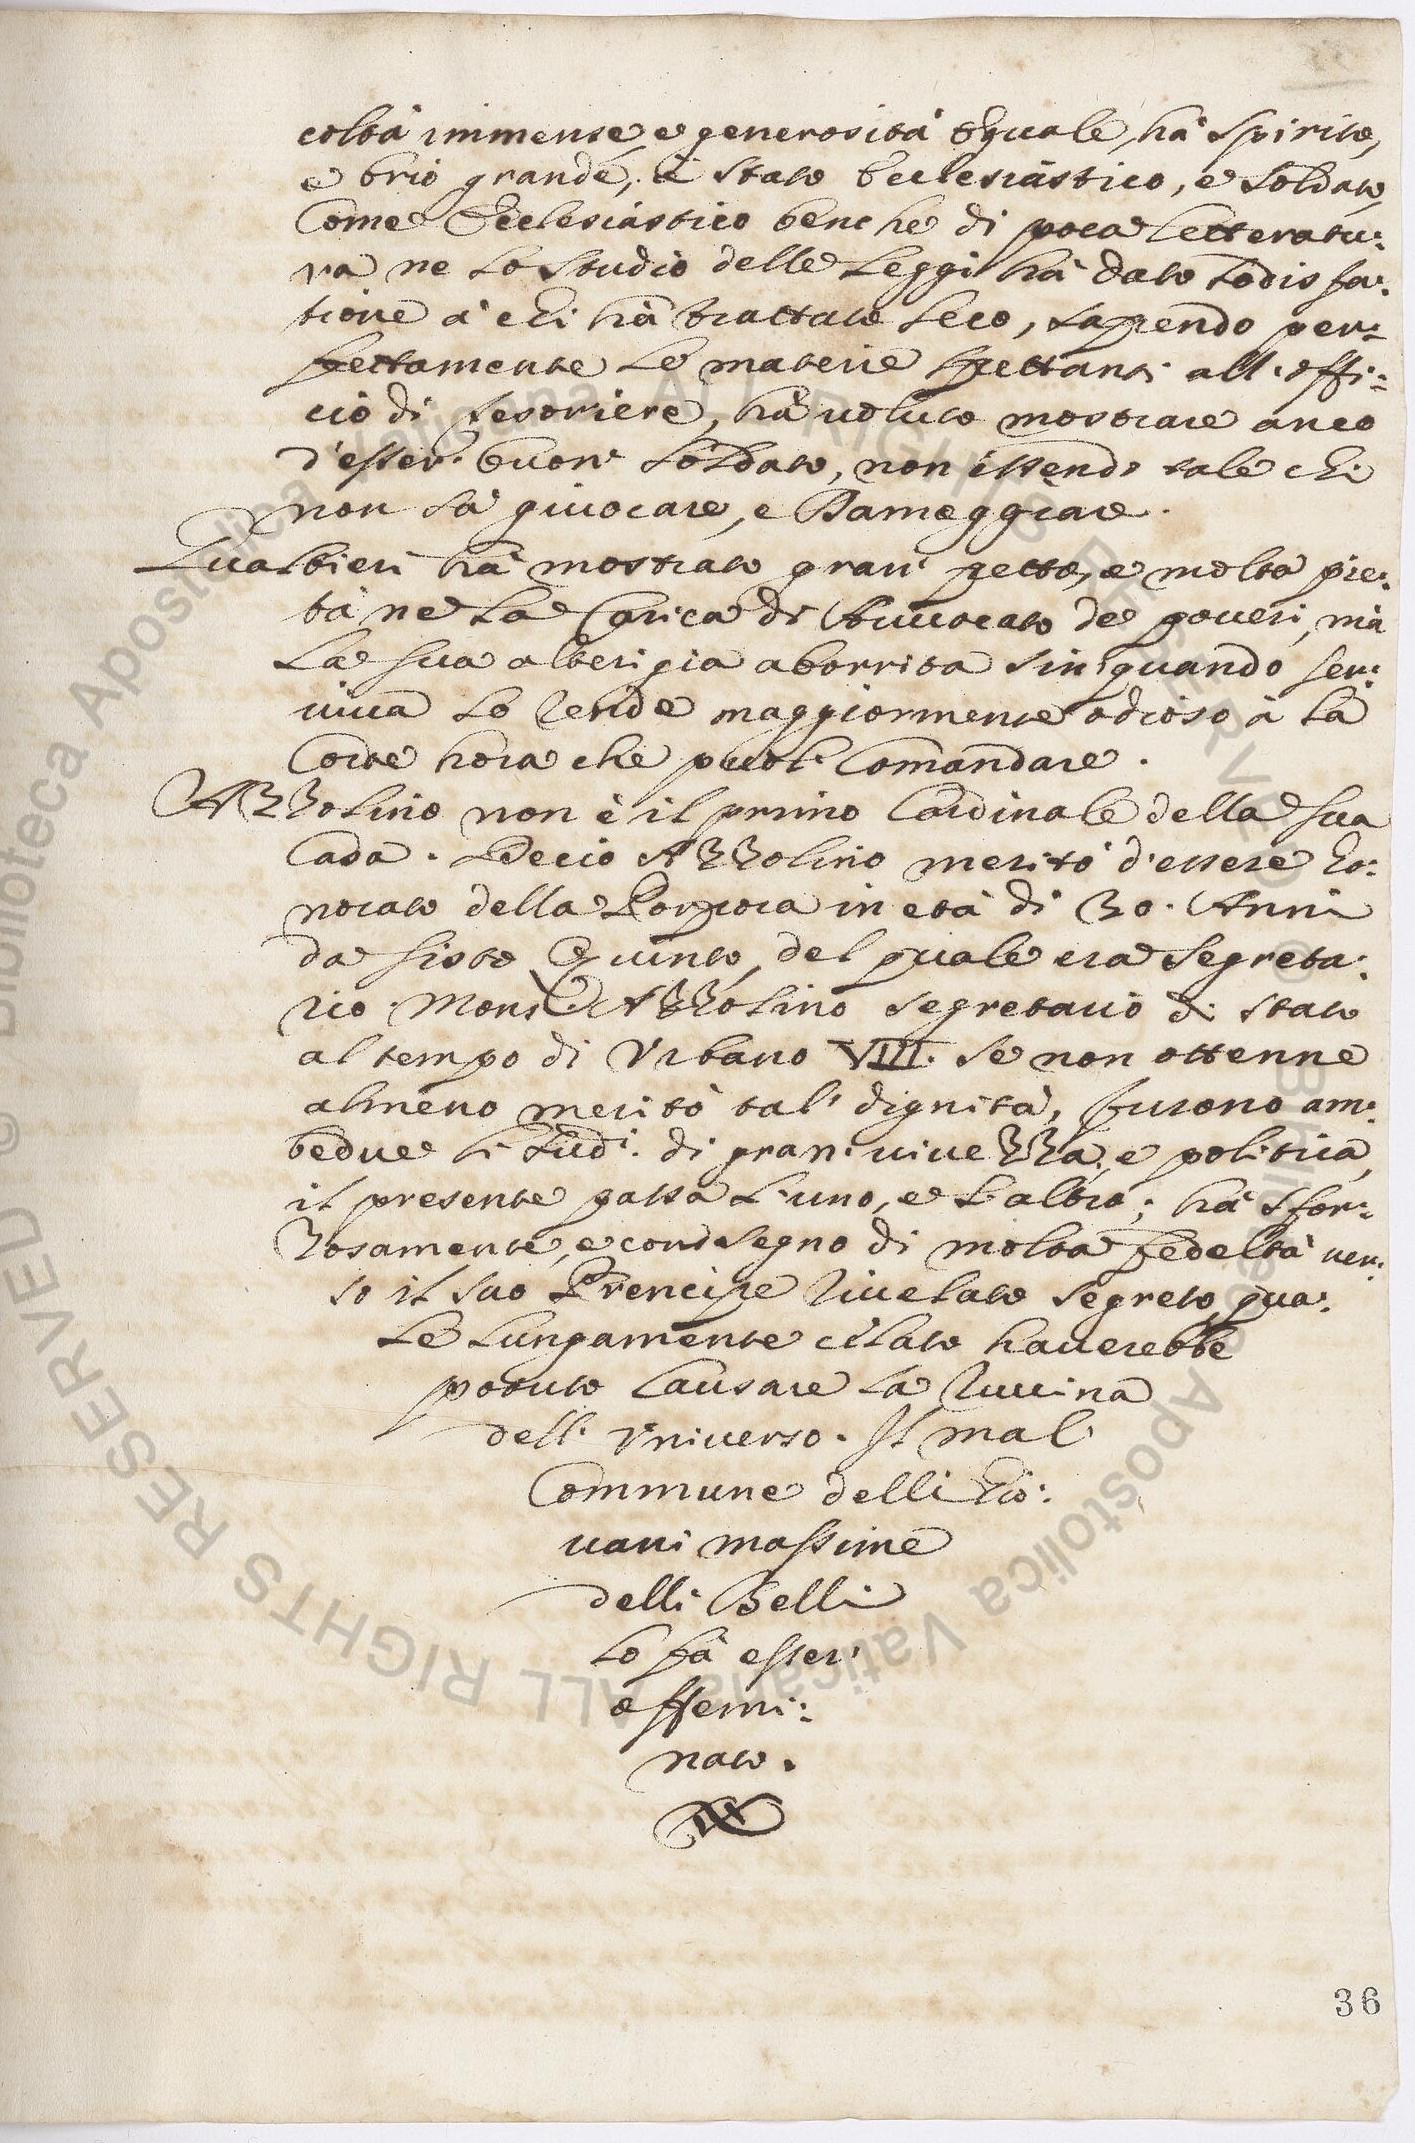 coltà immense, e generosità eguale, hà spirito,
e brio grande, è stato Ecclesiastico, e soldato,
Come Ecclesiastico benche di poca letteratu:
ra ne lo studio delle leggi hà dato sodisfa:
tione à chi hà trattato seco, sapendo per:
fettamente le materie spettanti all'offi:
cio di Tesoriere, hà voluto mostrare anco
d'esser buon soldato, non essendo tale chi
non sà giuocare, e Dameggiare.
Gualtieri hà mostrato gran petto, e molta pie:
tà ne la Carica di Auuocato de poueri, mà
La sua alterigia aborrita sin quando ser:
uiua lo rende maggiormente odioso à la
Corte hora che puol Comandare.
Azzolino non è il primo Cardinale della sua
Casa. Decio Azzolino meritò d'essere ho:
norato della Porpora in età di 30. Anni
da Sisto Quinto, del quale era segreta:
rio. Mons.r Azzolino segretario di stato
al tempo di Vrbano VIII. se non ottenne
almeno meritò tal' dignità, furono am:
bedue li sud.i di gran viuezza, e politica,
il presente passa l'uno, e l'altro; hà sfor:
zosamente, e con segno di molta fedeltà uer:
so il suo Prencipe riuelato segreto, qua:
le lungamente celato hauerebbe
potuto causare la ruuina
dell' Vniuerso. Il mal
Commune delli Gio:
uani massime
delli Belli
lo fà esser
effemi:
nato.
36
© Biblioteca Apostolica Vaticana ALL RIGHTS RESERVED © Biblioteca Apostolica Vaticana ALL RIGHTS RESERVED